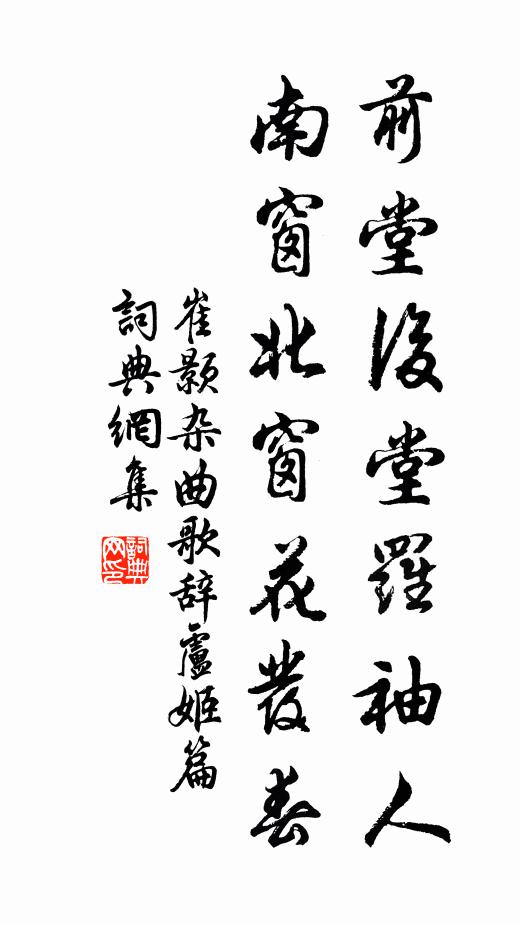 前堂後堂羅袖人
南窗北窗花發春
崔颢杂曲歌辞盧姬篇
詞典網集
詞典網印